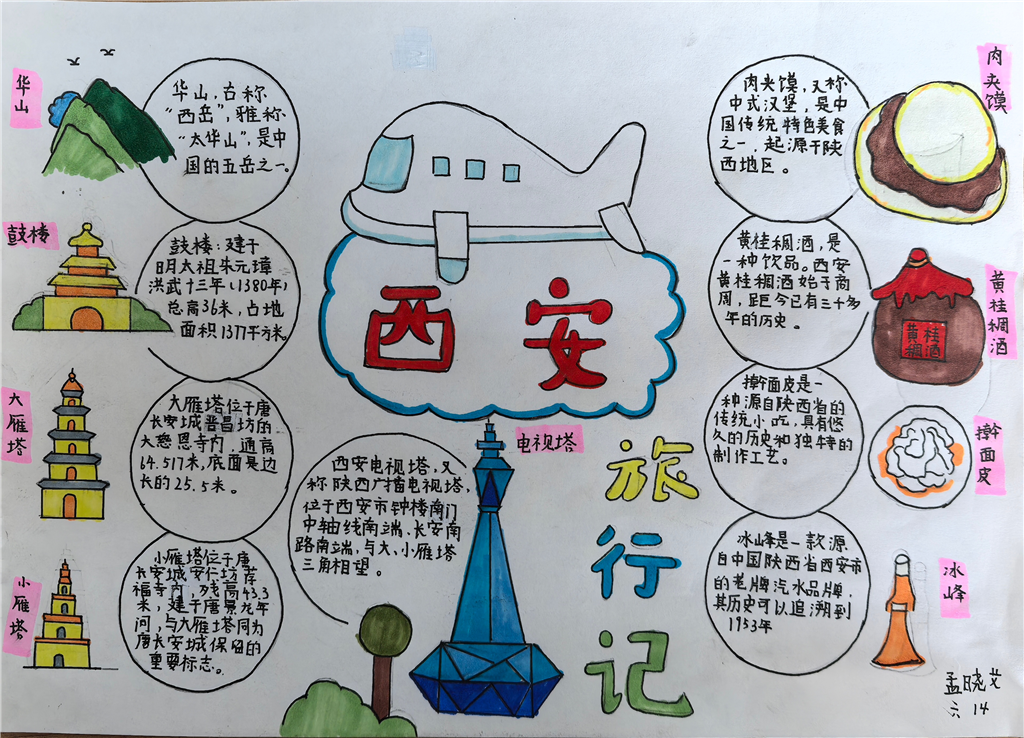 华山
华山，古称
“西岳”，雅称
“太华山”，是中
国的五岳之一。
鼓楼
鼓楼：建于
明太祖朱元璋
洪武十三年（1380年）
总高36米，占地
面积1377平方米。
大雁塔
大雁塔位于唐
长安城晋昌坊的
大慈恩寺内，通高
64.517米，底面是边
长的25.5米。
小雁塔
小雁塔位于唐
长安城安仁坊荐
福寺内，残高43.3
米，建于唐景龙年
间，与大雁塔同为
唐长安城保留的
重要标志。
西安
旅行记
电视塔
西安电视塔，又
称陕西广播电视塔，
位于西安市钟楼南门
中轴线南端、长安南
路南端，与大、小雁塔
三角相望。
肉夹馍
肉夹馍，又称
中式汉堡，是中
国传统特色美食
之一，起源于陕
西地区。
黄桂稠酒
黄桂稠酒，是
一种饮品。西安
黄桂稠酒始于商
周，距今已有三千多
年的历史。
黄桂
稠酒
擀面皮
擀面皮是一
种源自陕西省的
传统小吃，具有悠
久的历史和独特的
制作工艺。
冰峰
冰峰是一款源
自中国陕西省西安市
的老牌汽水品牌，
其历史可以追溯到
1953年
孟晓艾
六 14